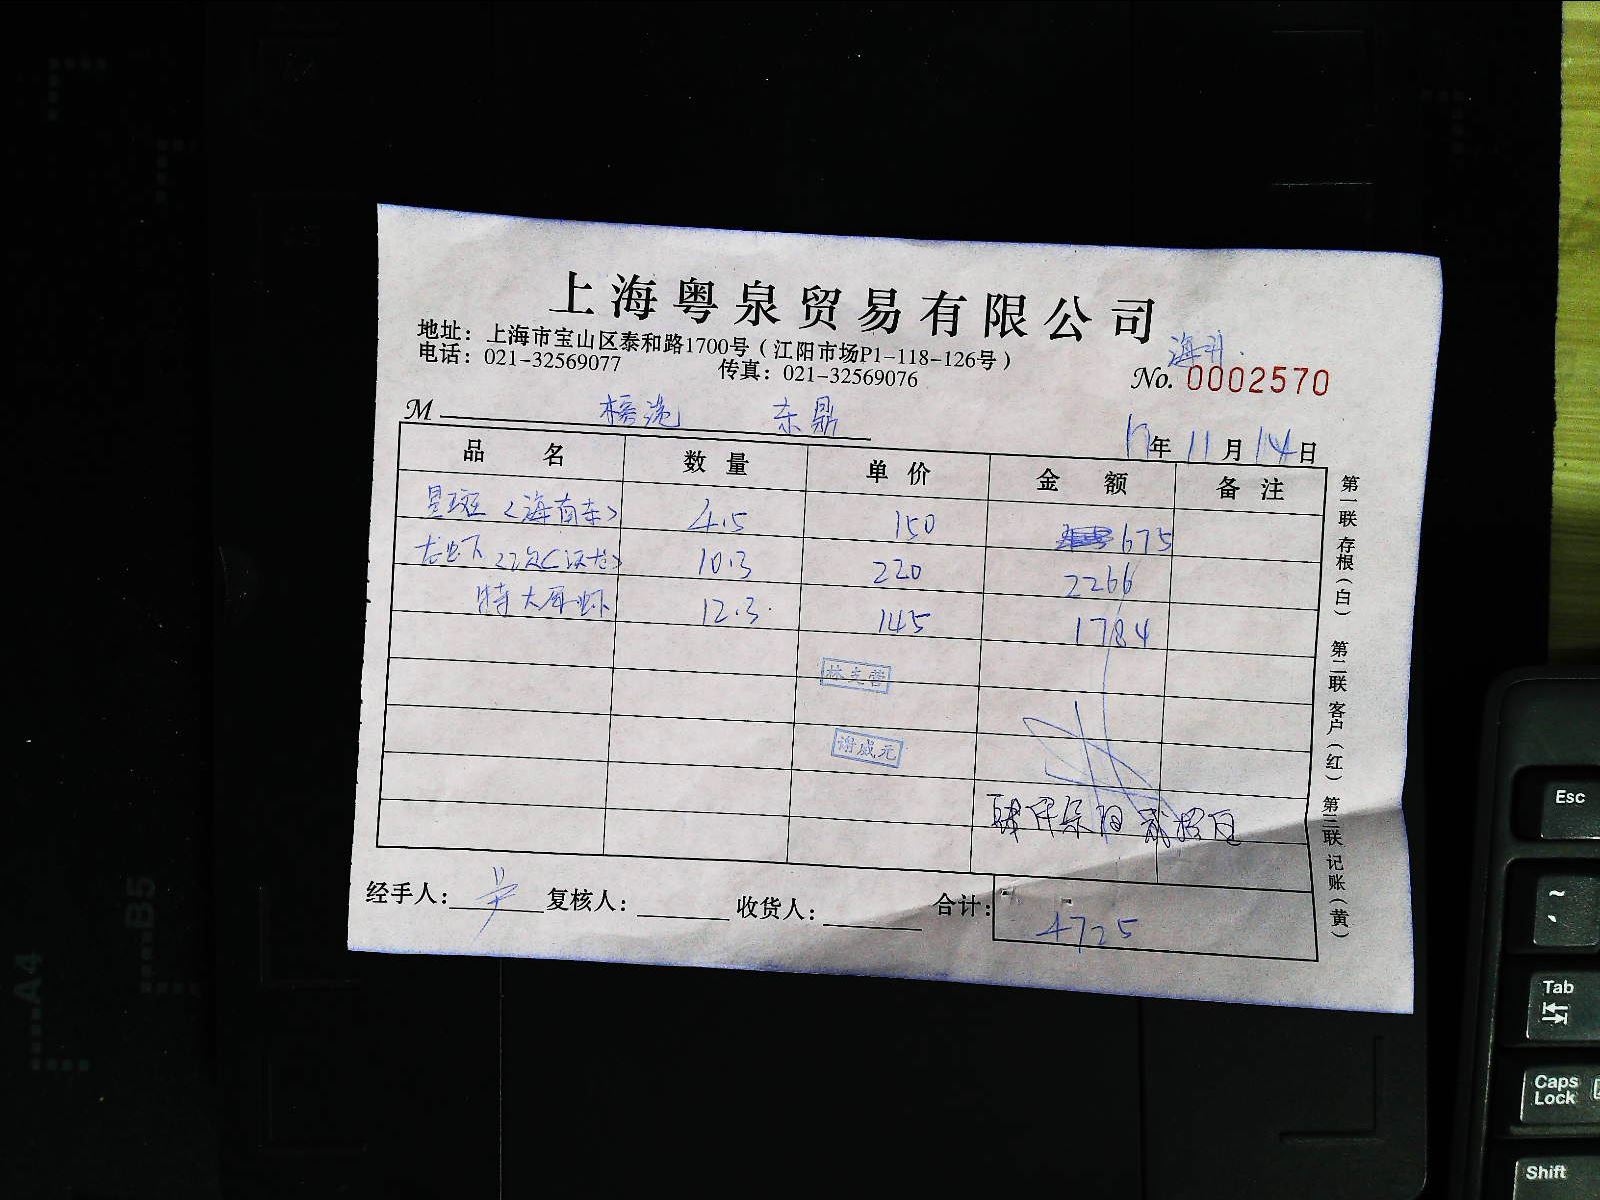 上海粤泉贸易有限公司
地址：上海市宝山区泰和路1700号（江阳市场P1-118-126号）
电话：021-32569077 传真：021-32569076
No. 0002570
M 东鼎
17年11月14日
品名 数量 单价 金额 备注
星斑（海南东） 4.5 150 675
龙虾 10.3 220 2266
特大 虾 12.3 145 1784
谢威元
经手人： 复核人： 收货人： 合计： 4725
第一联 存根（白） 第二联 客户（红） 第三联 记账（黄）
A4
B5
Esc
~
Tab
Caps Lock
Shift